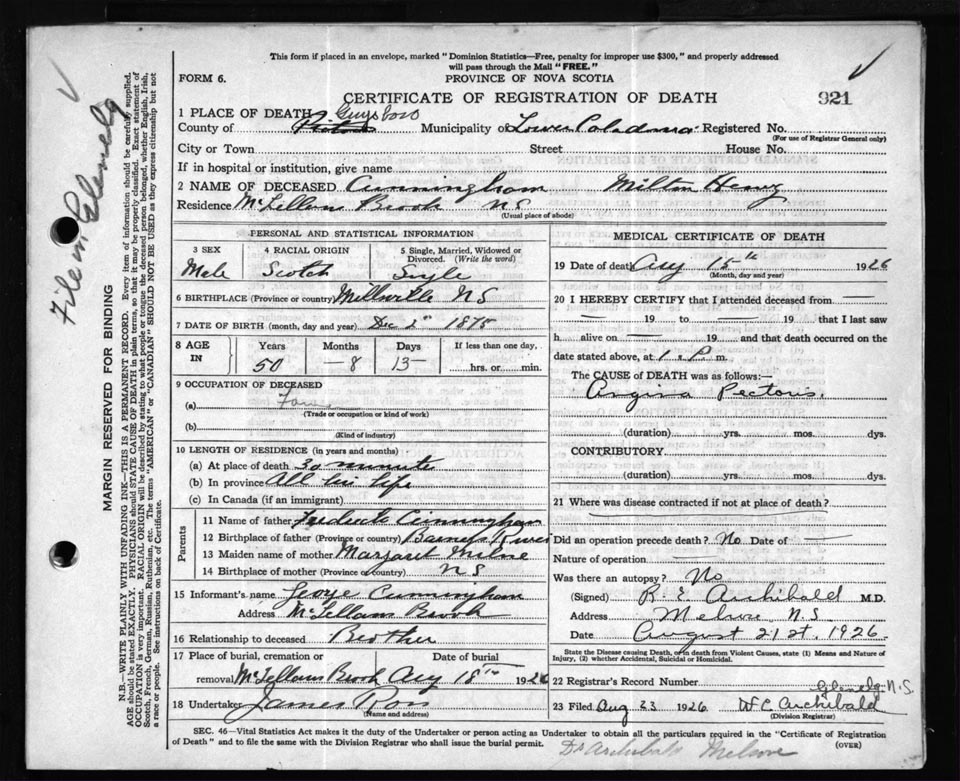 This form if placed in an envelope, marked "Dominion Statistics—Free, penalty for improper use $300," and properly addressed
will pass through the Mail "FREE."
FORM 6.
PROVINCE OF NOVA SCOTIA
CERTIFICATE OF REGISTRATION OF DEATH
921
1 PLACE OF DEATH Guysboro
County of Pictou Municipality of Lower Caledonia Registered No.
(For use of Registrar General only)
City or Town Street House No.
If in hospital or institution, give name
2 NAME OF DECEASED Cunningham Milton Henry
Residence McLellans Brook NS
(Usual place of abode)
PERSONAL AND STATISTICAL INFORMATION
3 SEX 4 RACIAL ORIGIN 5 Single, Married, Widowed or
Divorced. (Write the word)
Male Scotch Single
6 BIRTHPLACE (Province or country) Millville NS
7 DATE OF BIRTH (month, day and year) Dec 2n 1875
8 AGE IN Years Months Days If less than one day,
50 —8 13— hrs. or min.
9 OCCUPATION OF DECEASED
(a)
(Trade or occupation or kind of work)
(b)
(Kind of industry)
10 LENGTH OF RESIDENCE (in years and months)
(a) At place of death 30 minutes
(b) In province All his life
(c) In Canada (if an immigrant)
Parents
11 Name of father Fredrick Cunningham
12 Birthplace of father (Province or country) Barneys River
13 Maiden name of mother Margaret Milne
14 Birthplace of mother (Province or country) NS
15 Informant's name George Cunningham
Address McLellans Brook
16 Relationship to deceased Brother
17 Place of burial, cremation or Date of burial
removal McLellans Brook Aug 18th 1926
18 Undertaker James Ross
(Name and address)
MEDICAL CERTIFICATE OF DEATH
19 Date of death Aug 15th 1926
(Month, day and year)
20 I HEREBY CERTIFY that I attended deceased from —
— 19 to — 19 that I last saw
h alive on — 19 and that death occurred on the
date stated above, at 1 P. m.
The CAUSE of DEATH was as follows:—
Angina Pectoris.
(duration) yrs. mos. dys.
CONTRIBUTORY
(duration) yrs. mos. dys.
21 Where was disease contracted if not at place of death?
Did an operation precede death? No Date of —
Nature of operation —
Was there an autopsy? No
(Signed) R. E. Archibald M.D.
Address N.S.
Date August 21st. 1926
State the Disease causing Death, or in death from Violent Causes, state (1) Means and Nature of
Injury, (2) whether Accidental, Suicidal or Homicidal.
22 Registrar's Record Number
Glenelg N.S.
23 Filed Aug 23 1926 WC Archibald
(Division Registrar)
SEC. 46—Vital Statistics Act makes it the duty of the Undertaker or person acting as Undertaker to obtain all the particulars required in the "Certificate of Registration
of Death" and to file the same with the Division Registrar who shall issue the burial permit.
(OVER)
Dr Archibald
File in Glenelg
MARGIN RESERVED FOR BINDING
N.B.—WRITE PLAINLY WITH UNFADING INK—THIS IS A PERMANENT RECORD. Every item of information should be carefully supplied.
AGE should be stated EXACTLY. PHYSICIANS should STATE CAUSE OF DEATH in plain terms, so that it may be properly classified. Exact statement of
OCCUPATION is very important. RACIAL ORIGIN will be described by stating to what people or tongue the deceased person belonged, whether English, Irish,
Scotch, French, German, Russian, Ruthenian, etc. The terms "AMERICAN" or "CANADIAN" SHOULD NOT BE USED as they express citizenship but not
a race or people. See instructions on back of Certificate.